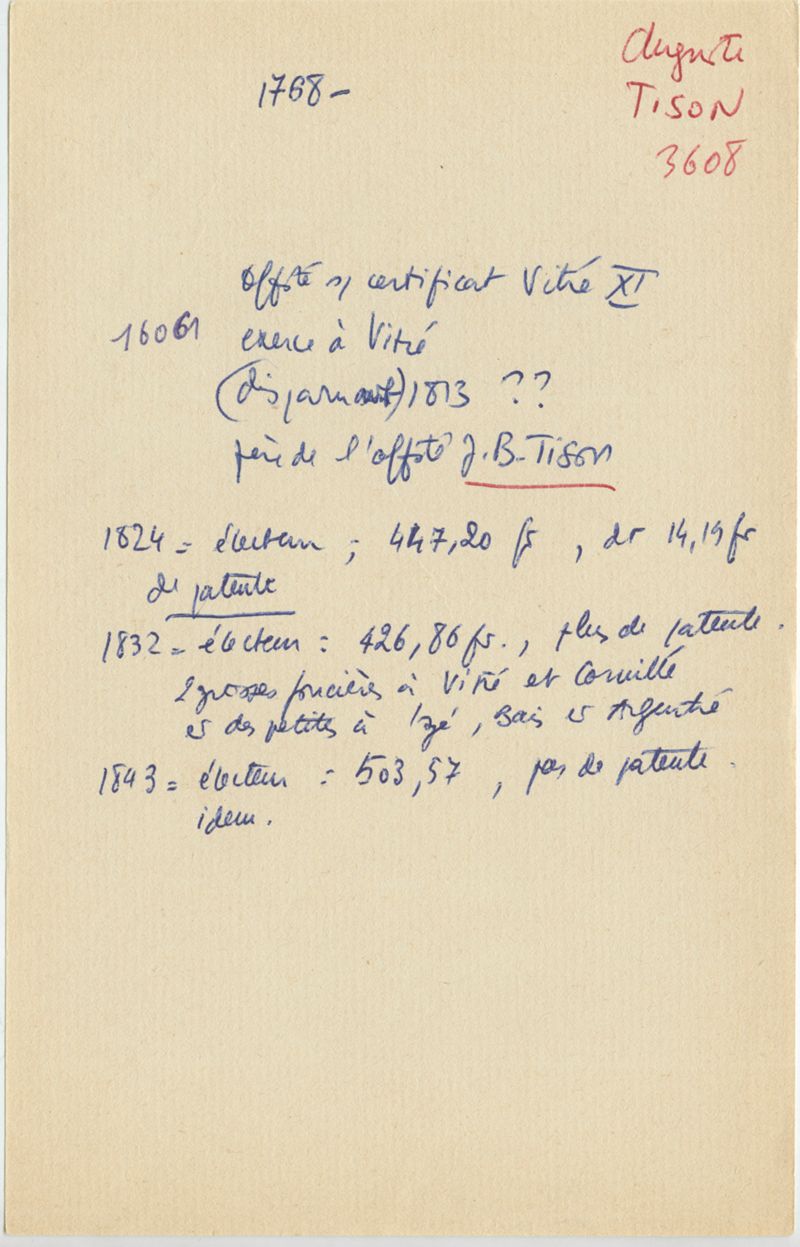 Auguste
1768-
TISON
3608
offsté s/ certificat Vitré XI
16061 exerce à Vitré
1813 ??
père de l'offsté J.B-TISON
1824 = électeur ; 447,20 fr , dt 14,19 fr
de patente
1832 = électeur : 426,86 fr. , plus de patente .
2 grosses foncières à Vitré et Cornillé
et des petites à Izé , Bais et Argentré
1843 = électeur : 503,57 , pas de patente .
idem .